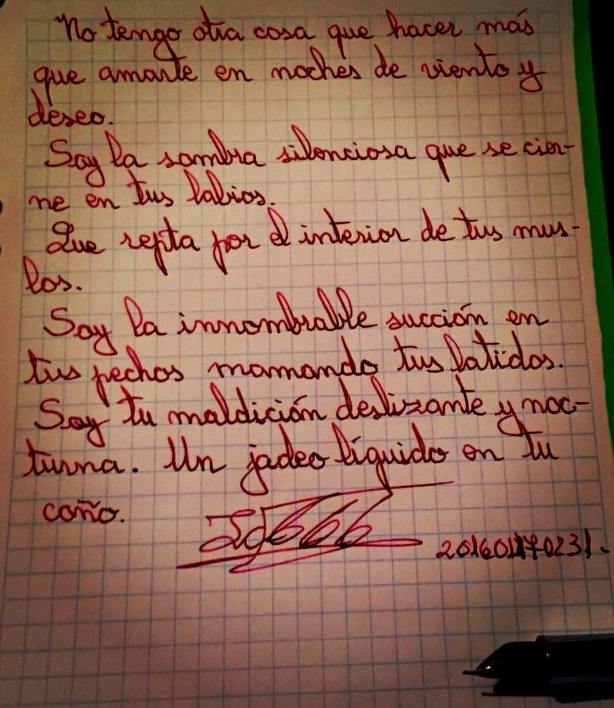 No tengo otra cosa que hacer más
que amarte en noches de viento y
deseo.
Soy la sombra silenciosa que se cier-
ne en tus labios.
Que repta por el interior de tus mus-
los.
Soy la innombrable succión en
tus pechos mamando tus latidos.
Soy tu maldición deslizante y noc-
turna. Un jadeo líquido en tu
coño.
666